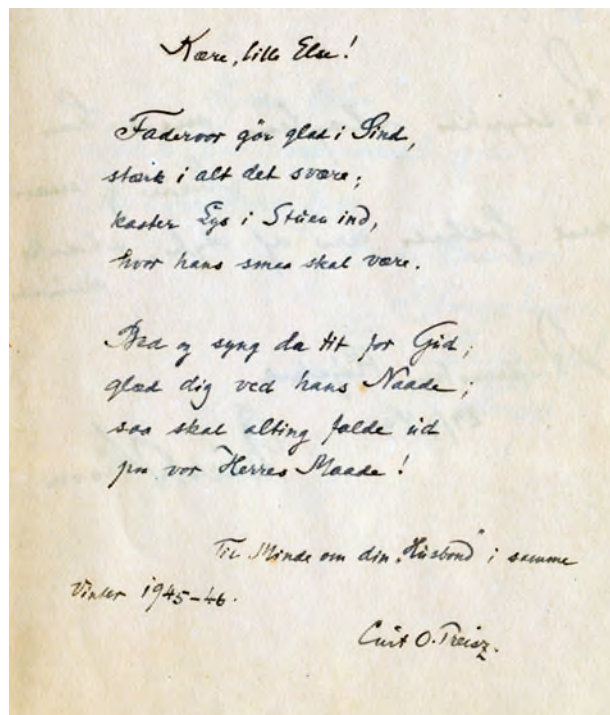 Kære, lille Else!
Fadervor gör glad i Sind,
stærk i alt det svære;
kaster Lys i Stuen ind,
hvor hans smaa skal være.
Bed og syng da tit for Gud;
glæd dig ved hans Naade;
saa skal alting falde ud
paa vor Herres Maade!
Til Minde om din „Husbond" i samme
Vinter 1945-46.
Curt O. Treisz.